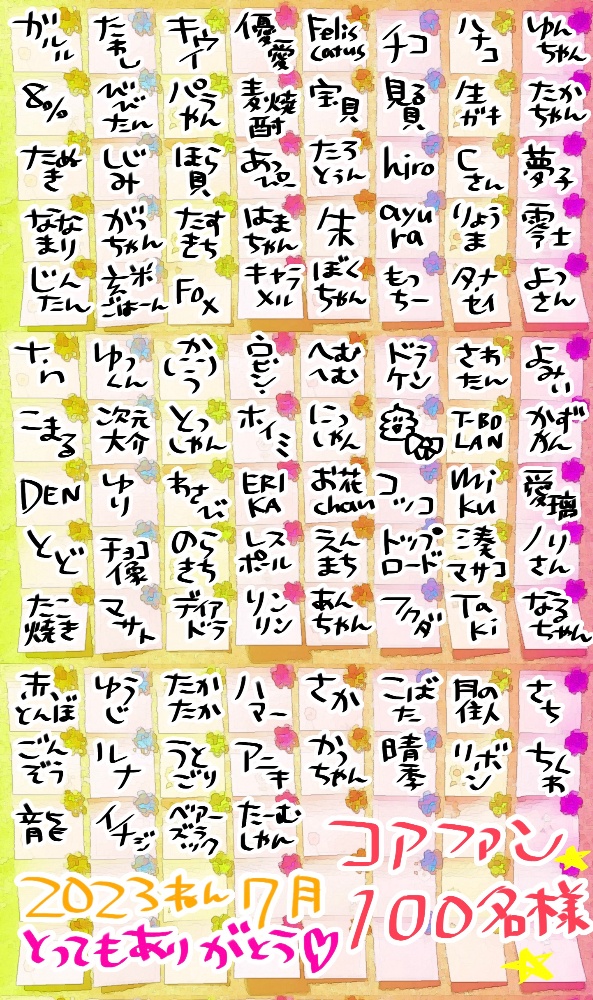 ガルル たまし キウイ 優愛 Felis catus チコ ハチコ ゆんちゃん
8% びびたん パラやん 麦焼酎 宝貝 見る貝 生ガキ たかちゃん
ためき しじみ ほら貝 あっぴー たろとぅん hiro Cさん 夢子
ななまり がっちゃん たすきち はまちゃん 朱 ayura りょうま 零士
じんたん 玄米ごはーん Fox キャラメル ぼくちゃん もっちー タナセイ よっさん
ゆっくん か(二)う ウビン. へむへむ ドラケン さわたん よみぃ
こまる 次元大介 とっしゃん ホイミ にっしゃん T-BOLAN かずかん
DEN ゆり わさび ERIKA お花chan コッコ miku 愛璃
とど チョコ像 のらきち レスポール えんまち トップロード 湊マサコ ノリさん
たこ焼き マサト ディアドラ リンリン あんちゃん フクダ Taki なるちゃん
赤とんぼ ゆうじ たかたか ハマー さか こばた 月の住人 さち
ごんぞう ルナ うとごり アニキ かっちゃん 晴季 リボン ちくわ
龍 イチジ ベアーズラック たーむしゃん
コアファン
100名様
2023ねん7月
とってもありがとう♡